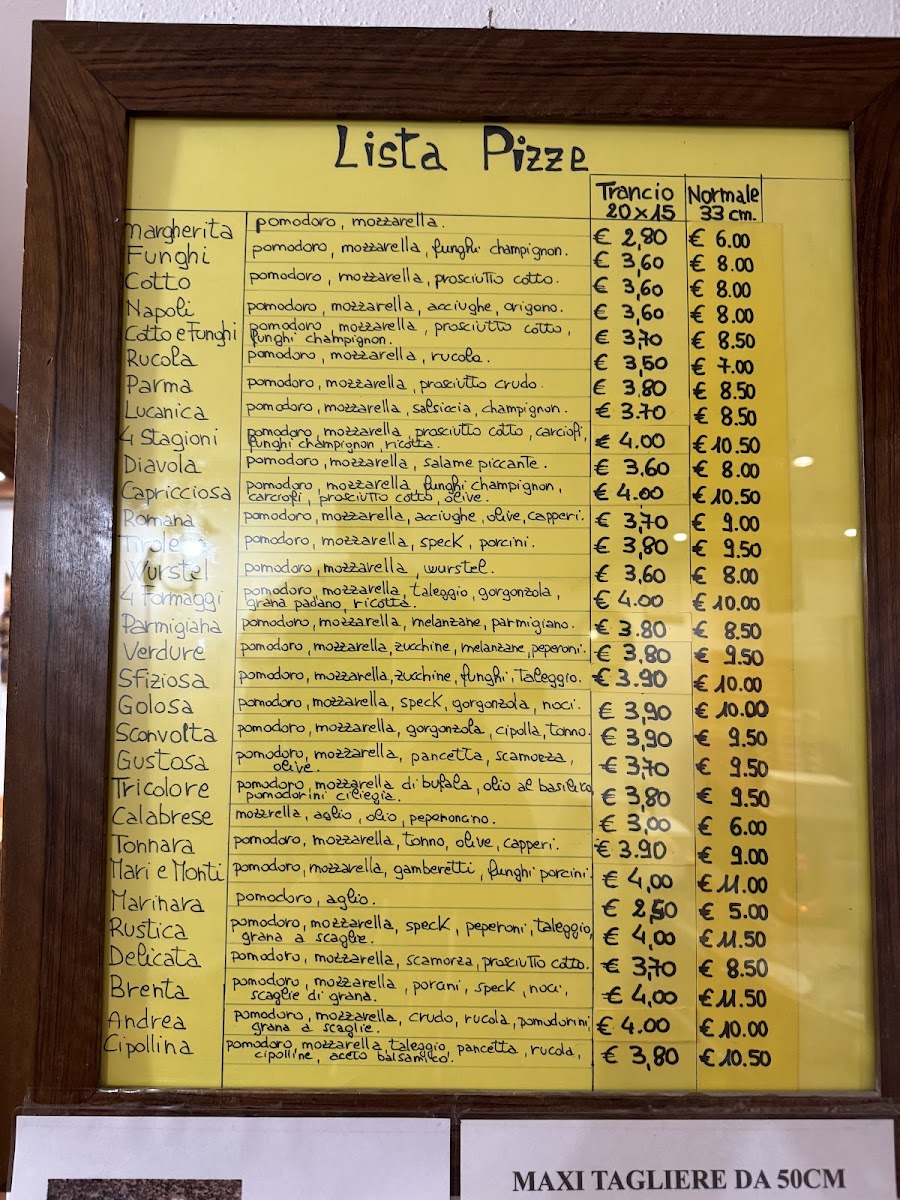 Lista Pizze
Trancio Normale
20x15 33 cm.
Margherita pomodoro, mozzarella. € 2,80 € 6.00
Funghi pomodoro, mozzarella, funghi champignon. € 3,60 € 8.00
Cotto pomodoro, mozzarella, prosciutto cotto. € 3,60 € 8.00
Napoli pomodoro, mozzarella, acciughe, origano. € 3,60 € 8.00
Cotto e Funghi pomodoro, mozzarella, prosciutto cotto, € 3,70 € 8.50
funghi champignon.
Rucola pomodoro, mozzarella, rucola. € 3,50 € 7.00
Parma pomodoro, mozzarella, prosciutto crudo. € 3,80 € 8.50
Lucanica pomodoro, mozzarella, salsiccia, champignon. € 3.70 € 8.50
4 Stagioni pomodoro, mozzarella, prosciutto cotto, carciofi, € 4.00 € 10.50
funghi champignon, ricotta.
Diavola pomodoro, mozzarella, salame piccante. € 3,60 € 8.00
Capricciosa pomodoro, mozzarella, funghi champignon, € 4.00 € 10.50
carciofi, prosciutto cotto, olive.
Romana pomodoro, mozzarella, acciughe, olive, capperi. € 3,70 € 9.00
pomodoro, mozzarella, speck, porcini. € 3,80 € 9.50
Wurstel pomodoro, mozzarella, wurstel. € 3,60 € 8.00
4 Formaggi pomodoro, mozzarella, taleggio, gorgonzola, € 4.00 € 10.00
grana padano, ricotta.
Parmigiana pomodoro, mozzarella, melanzane, parmigiano. € 3.80 € 8.50
Verdure pomodoro, mozzarella, zucchine, melanzane, peperoni. € 3,80 € 9.50
Sfiziosa pomodoro, mozzarella, zucchine, funghi, taleggio. € 3.90 € 10.00
Golosa pomodoro, mozzarella, speck, gorgonzola, noci. € 3,90 € 10.00
Sconvolta pomodoro, mozzarella, gorgonzola, cipolla, tonno. € 3,90 € 9.50
Gustosa pomodoro, mozzarella, pancetta, scamorza, € 3,70 € 9.50
olive.
Tricolore pomodoro, mozzarella di bufala, olio al basilico, € 3,80 € 9.50
pomodorini ciliegia.
Calabrese mozzerella, aglio, olio, peperoncino. € 3,00 € 6.00
Tonnara pomodoro, mozzarella, tonno, olive, capperi. € 3.90 € 9.00
Mari e Monti pomodoro, mozzarella, gamberetti, funghi porcini. € 4,00 € 11.00
Marinara pomodoro, aglio. € 2,50 € 5.00
Rustica pomodoro, mozzarella, speck, peperoni, taleggio, € 4,00 € 11.50
grana a scaglie.
Delicata pomodoro, mozzarella, scamorza, prosciutto cotto. € 3,70 € 8.50
Brenta pomodoro, mozzarella, porcini, speck, noci, € 4,00 € 11.50
scaglie di grana.
Andrea pomodoro, mozzarella, crudo, rucola, pomodorini, € 4.00 € 10.00
grana a scaglie.
Cipollina pomodoro, mozzarella taleggio, pancetta, rucola, € 3,80 € 10.50
cipolline, aceto balsamico.
MAXI TAGLIERE DA 50CM